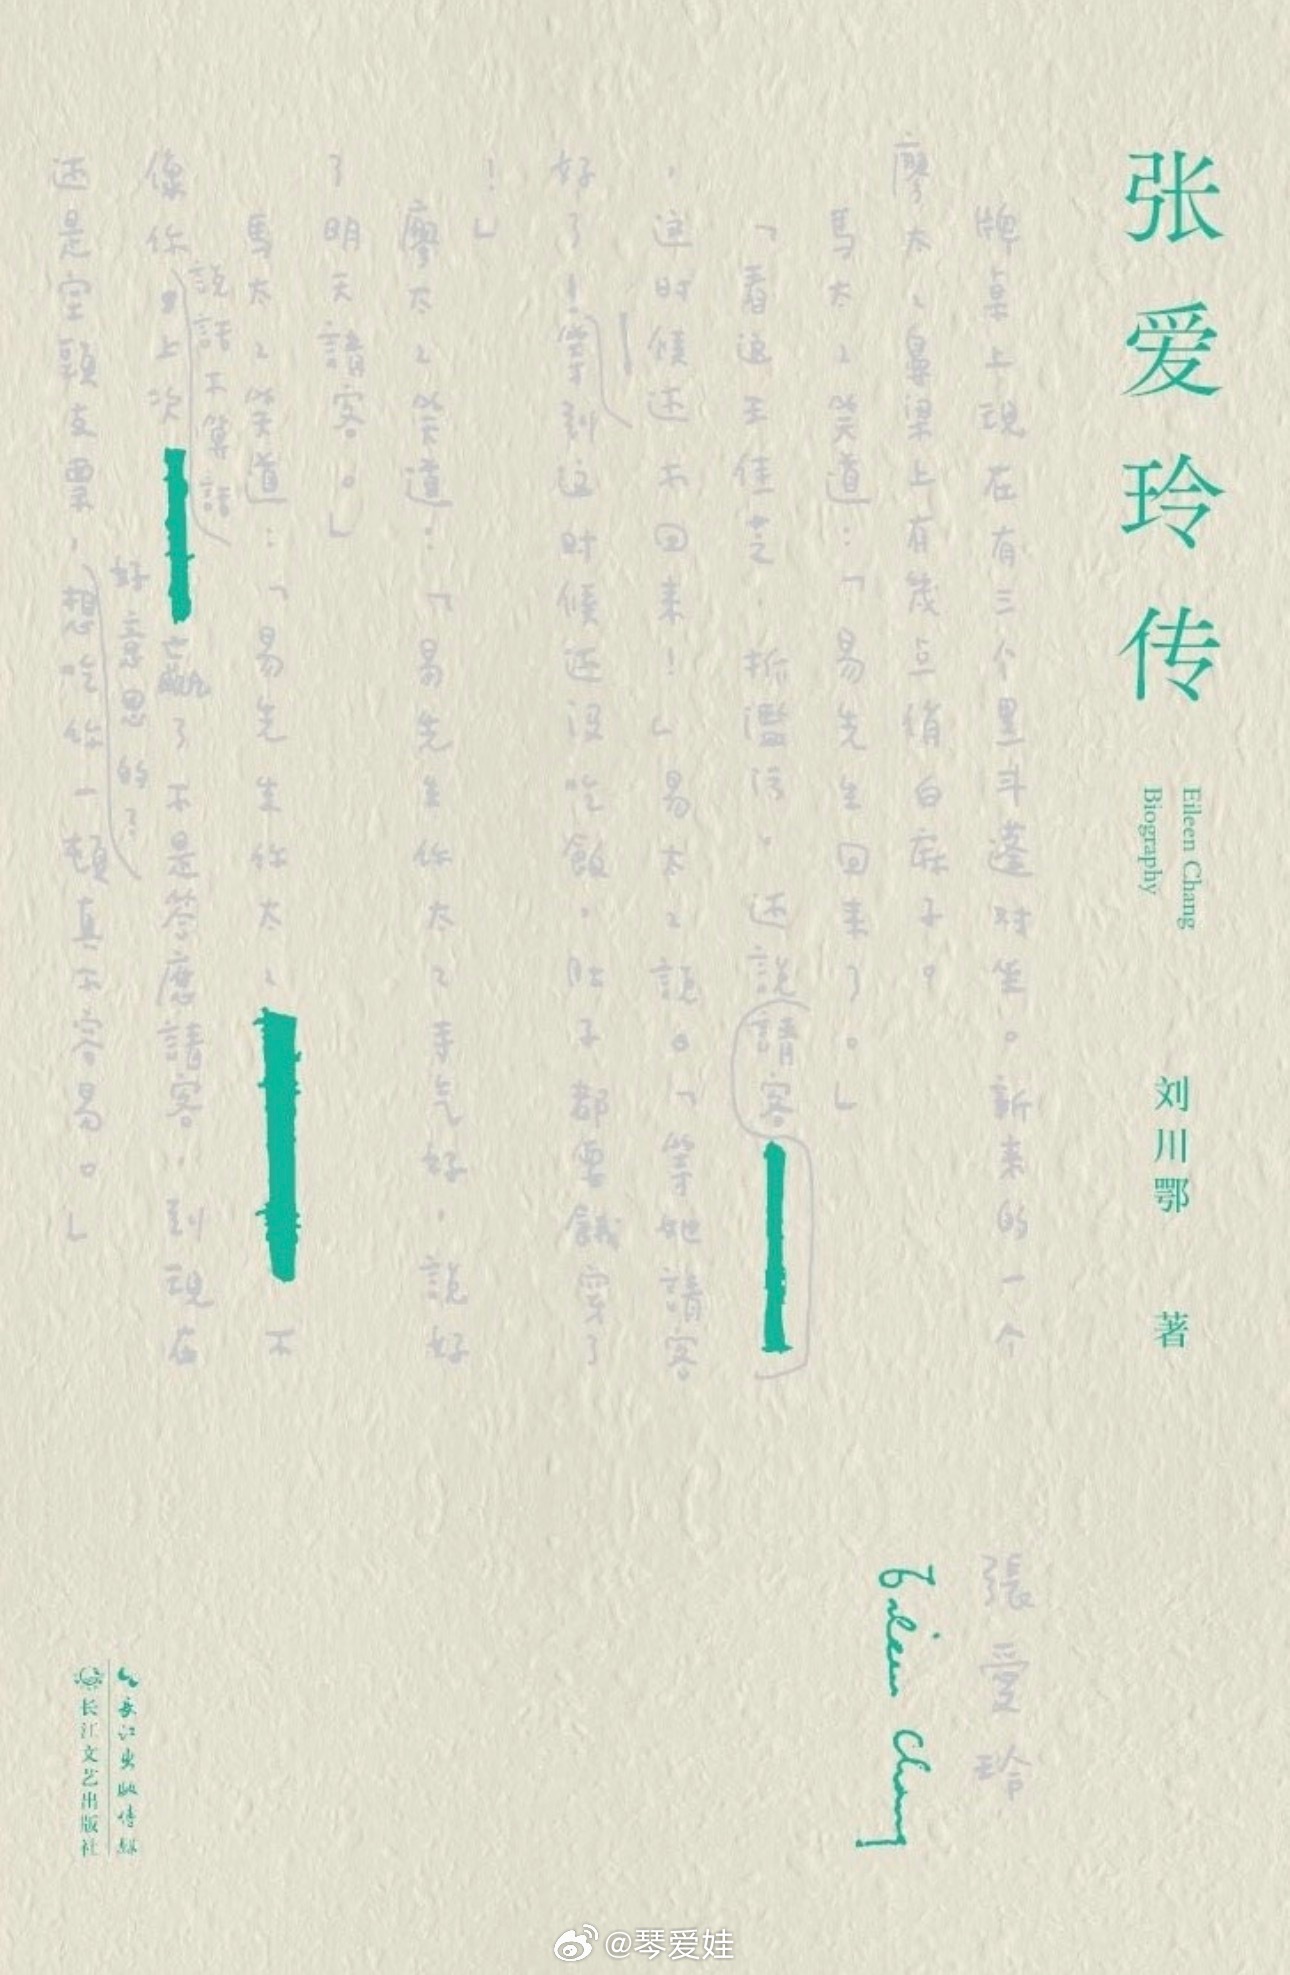 张爱玲传
Eileen Chang
Biography
刘川鄂 著
牌桌上現在有三个黑斗蓬对坐。新来的一个
廖太〻鼻梁上有幾点俏白麻子。
馬太〻笑道：「易先生回来了。」
「看这王佳芝，拆濫污，还説請客
，这时候还不回来！」易太〻説。「等她請客
好了！等到这时候还沒吃飯，肚子都要餓穿了
！」
廖太〻笑道：「易先生你太〻手气好，説好
了明天請客。」
馬太〻笑道：「易先生你太〻不
像你説話不算話，上次贏了不是答應請客，到現在
还是空頭支票，好意思的？想吃你一頓真不容易。」
張愛玲
Eileen Chang
长江出版传媒
长江文艺出版社
@琴爱娃